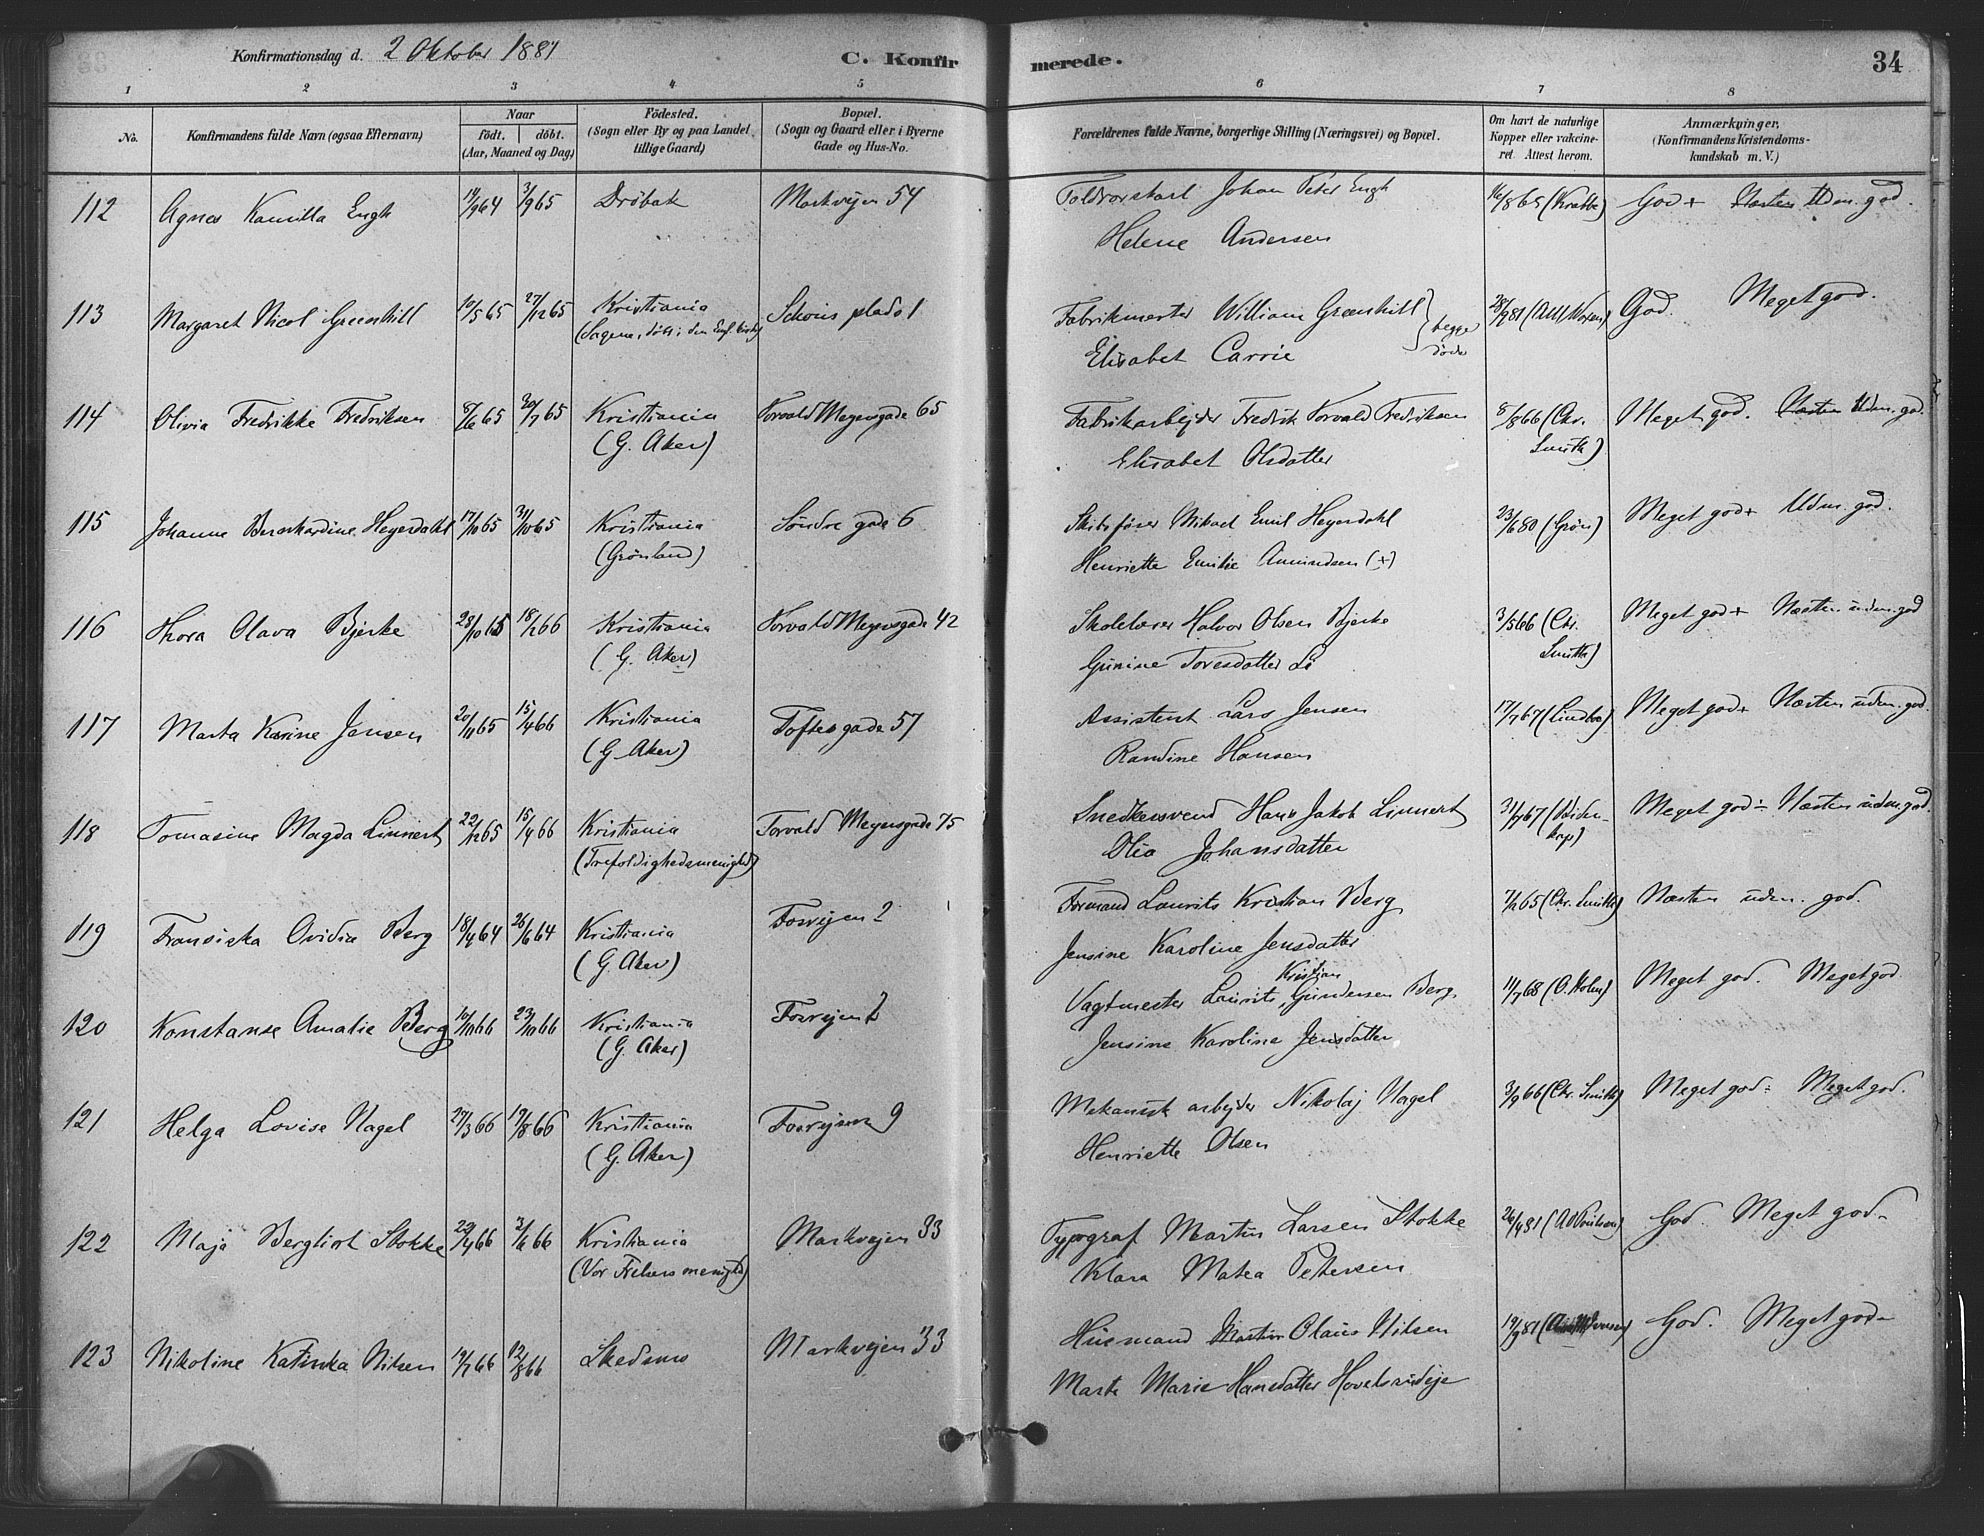 Konfirmationsdag d. 2 Oktober 1881
C. Konfir merede.
34
1 2 3 4 5 6 7 8
No.
Konfirmandens fulde Navn (ogsaa Efternavn)
Naar
födt. döbt.
(Aar, Maaned og Dag)
Födested.
(Sogn eller By og paa Landet
tillige Gaard)
Bopæl.
(Sogn og Gaard eller i Byerne
Gade og Hus-No.
Forældrenes fulde Navne, borgerlige Stilling (Næringsvei) og Bopæl.
Om havt de naturlige
Kopper eller vakcine-
ret Attest herom.
Anmærkninger.
(Konfirmandens Kristendoms-
kundskab m. V.)
112 Agnes Kamilla Engh 14/9 64 3/9 65 Dröbak Markvejen 54 Toldrorskarl Johan Peter Engh 16/8 65 (Krabbe) God + Næsten Udm. god.
Helene Andersen
113 Margaret Nicol Greenhill 10/5 65 27/12 65 Kristiania Schous plads 1 Fabrikmester William Greenhill 28/9 81 God. Meget god.
(Sagene, döbt i den Engl. kirke) begge
Elisabet Carrie döde
114 Olivia Fredrikke Fredriksen 8/6 65 30/7 65 Kristiania Torvald Meyersgade 65 Fabrikarbejder Fredrik Torvald Fredriksen 8/8 66 (Chr. Meget god. Næsten Udm. god.
(G. Aker) Elisabet Olsdatter Smith)
115 Johanne Bernhardine Heyerdahl 17/10 65 31/10 65 Kristiania Söndre gade 6 Skibsförer Mikael Emil Heyerdahl 23/6 80 (Grön) Meget god + Udm. god.
(Grönland) Henriette Emilie Amundsen (+)
116 Thora Olava Bjerke 28/10 65 18/2 66 Kristiania Torvald Meyersgade 42 Skolelærer Halvor Olsen Bjerke 3/5 66 (Chr. Meget god + Næsten udm. god
(G. Aker) Gunine Toresdatter Li Smith)
117 Marta Karine Jensen 20/11 65 15/4 66 Kristiania Toftesgade 57 Assistent Lars Jensen 17/7 67 (Lindbo) Meget god + Næsten udm. god.
(G. Aker) Randine Hansen
118 Tomasine Magda Linnert 22/12 65 15/4 66 Kristiania Torvald Meyersgade 75 Snedkersvend Hans Jakob Linnert 31/7 67 Meget god ÷ Næsten udm. god.
(Trefoldighedsmenighed) Olia Johansdatter
119 Fransiska Ovidia Berg 18/4 64 26/6 64 Kristiania Fosvejen 2 Formand Laurits Kristian Berg 7/2 65 (Chr. Smith) Næsten udm. god.
(G. Aker) Jensine Karoline Jensdatter
Kristian
120 Konstanse Amalie Berg 10/10 66 23/10 66 Kristiania Fosvejen 2 Vagtmester Laurits Gundersen Berg. 11/7 68 (O. Holm) Meget god. Meget god.
(G. Aker) Jensine Karoline Jensdatter
121 Helga Lovise Nagel 27/3 66 19/8 66 Kristiania Fosvejen 9 Mekanisk arbejder Nikolaj Nagel 3/9 66 (Chr. Smith) Meget god ÷ Meget god.
(G. Aker) Henriette Olsen
122 Maja Bergliot Stokke 22/4 66 3/6 66 Kristiania Markvejen 33 Typograf Martin Larsen Stokke 26/4 81 God. Meget god ÷
(Vor Frelsers menighd) Klara Matea Pettersen
123 Nikoline Katinka Nilsen 14/7 66 12/8 66 Skedsmo Markvejen 33 Husmand Martin Olaus Nilsen 19/9 81 God. Meget god ÷
Marte Marie Hansdatter Hovelsrudeje